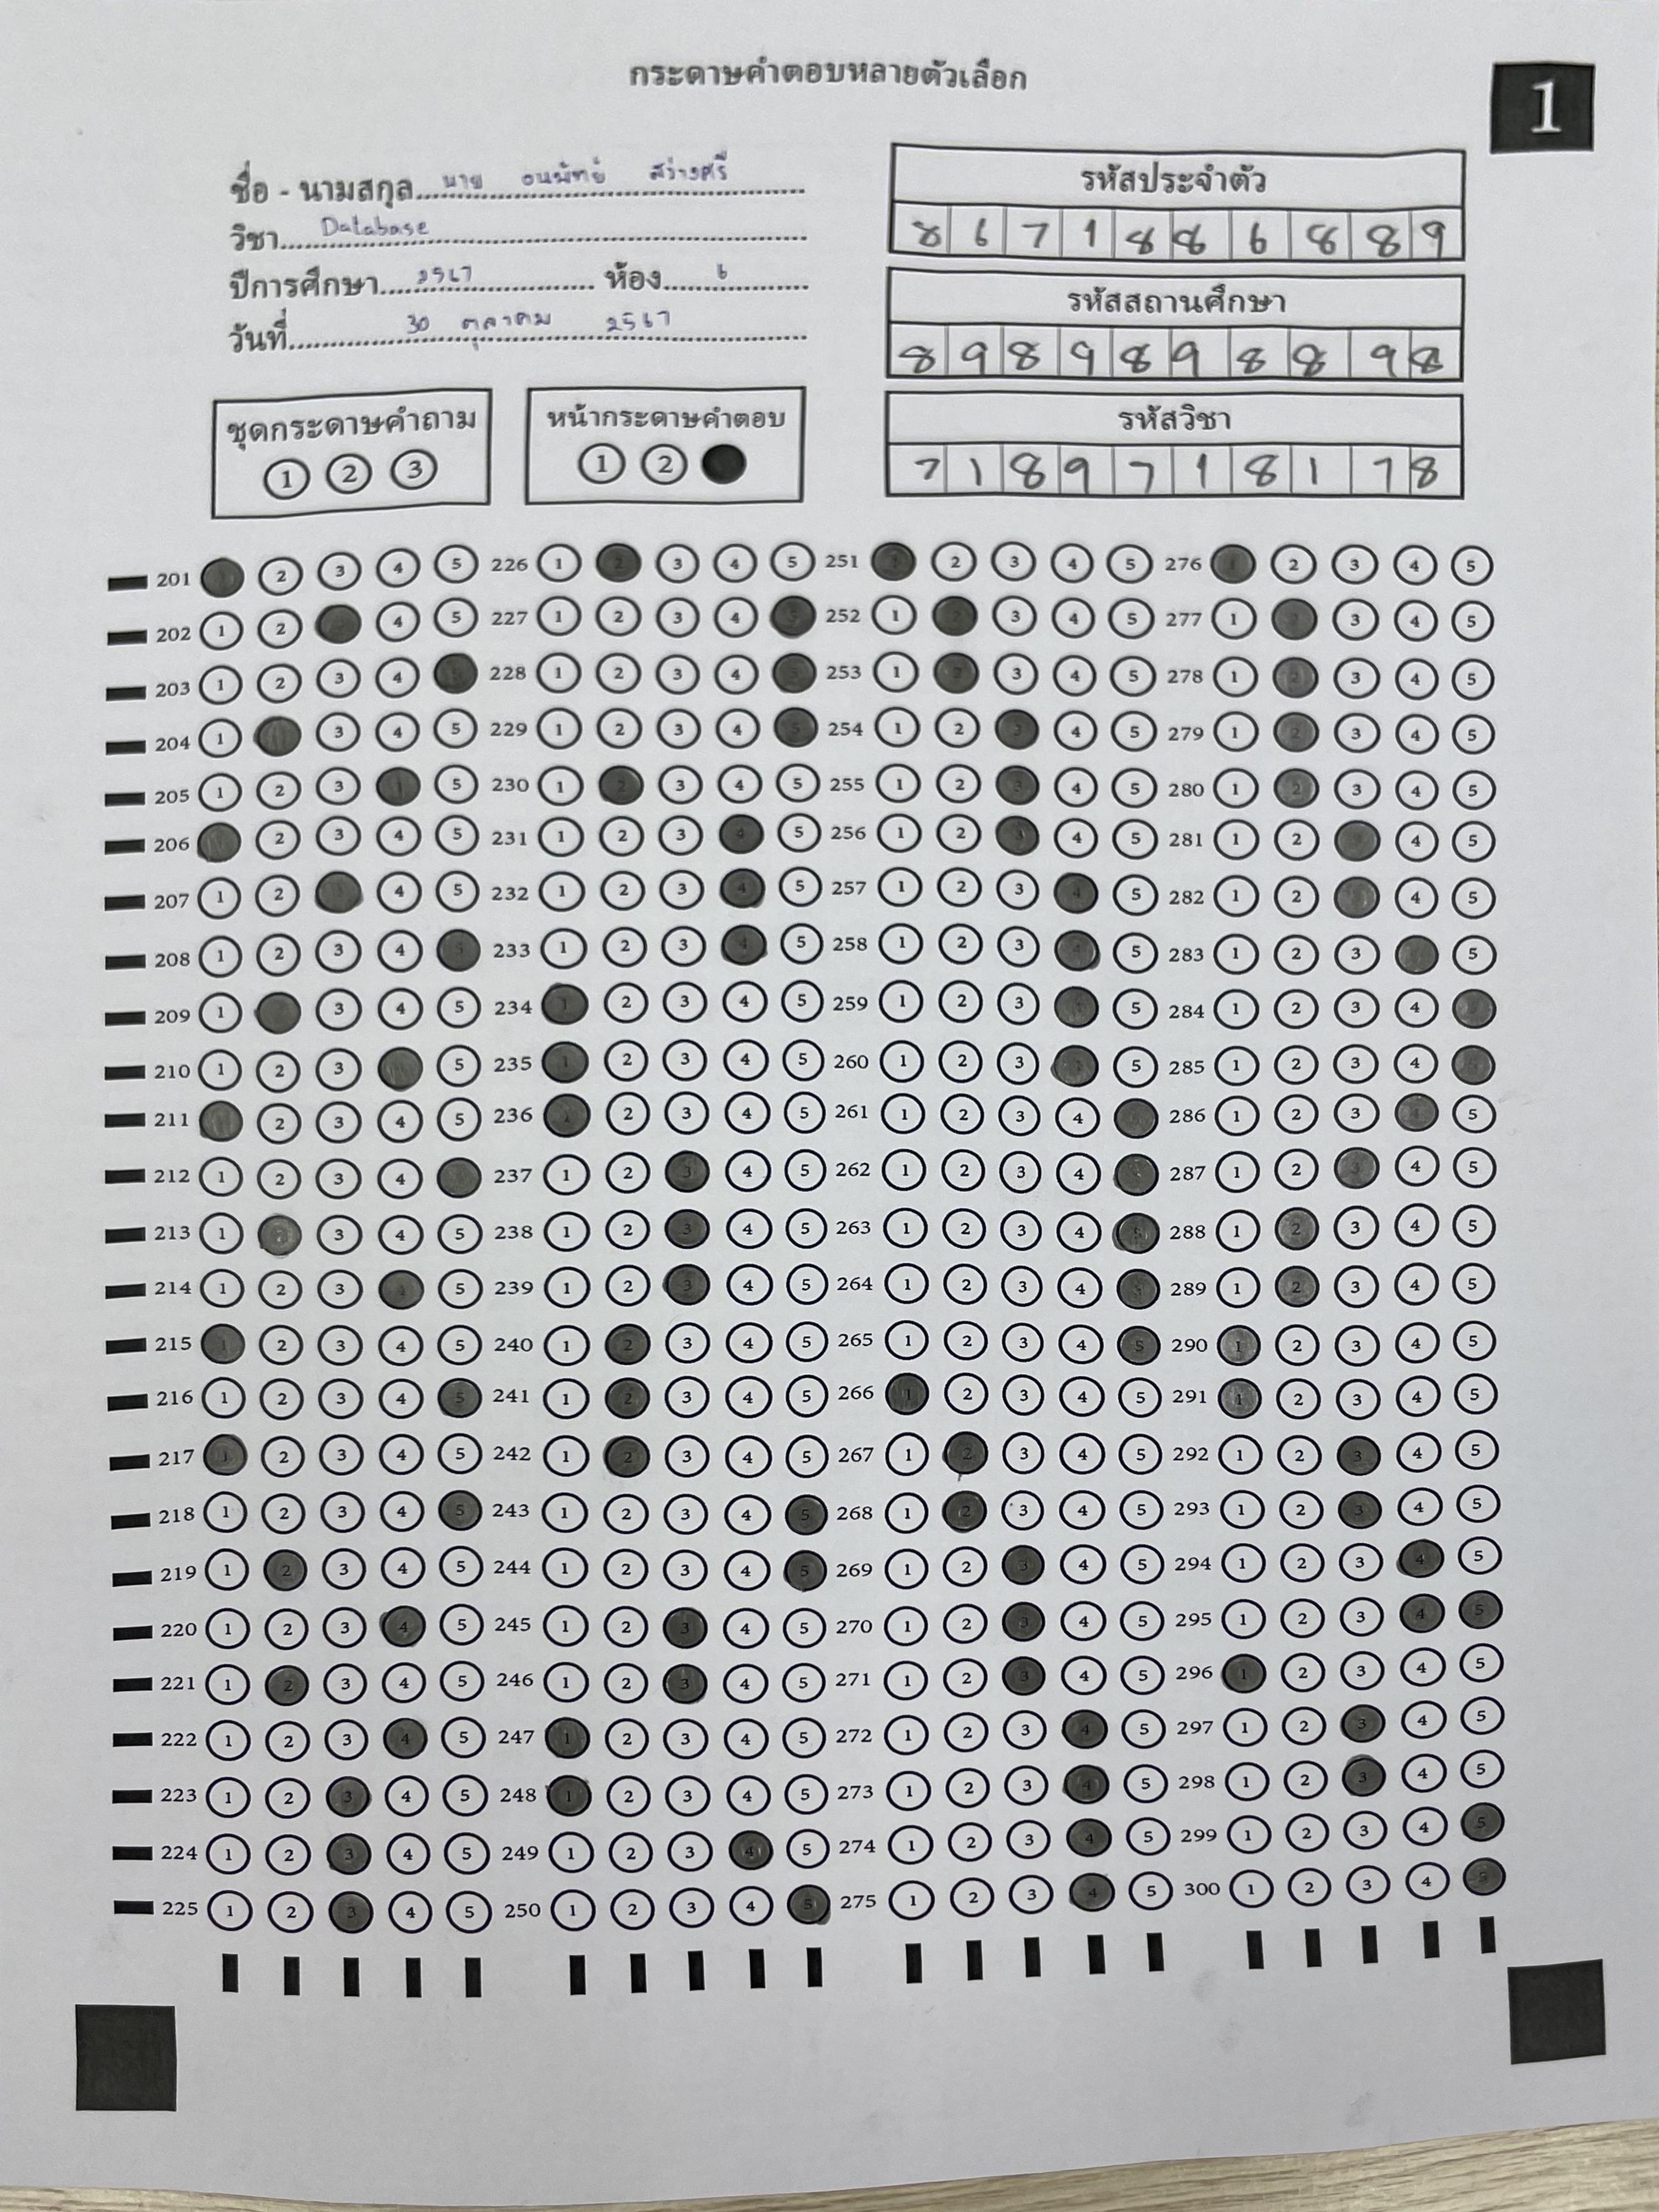 กระดาษคำตอบหลายตัวเลือก
1
ชื่อ - นามสกุล นาย ธนพัทย์ สว่างศรี
วิชา Database
ปีการศึกษา 2567 ห้อง 6
วันที่ 30 ตุลาคม 2567
รหัสประจำตัว
8 6 7 1 8 8 6 8 8 9
รหัสสถานศึกษา
8 9 8 9 8 9 8 8 9 8
รหัสวิชา
7 1 8 9 7 1 8 1 7 8
ชุดกระดาษคำถาม
1 2 3
หน้ากระดาษคำตอบ
1 2
201 2 3 4 5 226 1 2 3 4 5 251 2 3 4 5 276 1 2 3 4 5
202 1 2 4 5 227 1 2 3 4 5 252 1 2 3 4 5 277 1 2 3 4 5
203 1 2 3 4 228 1 2 3 4 5 253 1 2 3 4 5 278 1 2 3 4 5
204 1 3 4 5 229 1 2 3 4 5 254 1 2 3 4 5 279 1 2 3 4 5
205 1 2 3 4 5 230 1 2 3 4 5 255 1 2 3 4 5 280 1 2 3 4 5
206 2 3 4 5 231 1 2 3 4 5 256 1 2 3 4 5 281 1 2 3 4 5
207 1 2 3 4 5 232 1 2 3 4 5 257 1 2 3 4 5 282 1 2 3 4 5
208 1 2 3 4 5 233 1 2 3 4 5 258 1 2 3 4 5 283 1 2 3 4 5
209 1 3 4 5 234 1 2 3 4 5 259 1 2 3 4 5 284 1 2 3 4 5
210 1 2 3 5 235 1 2 3 4 5 260 1 2 3 4 5 285 1 2 3 4 5
211 2 3 4 5 236 1 2 3 4 5 261 1 2 3 4 5 286 1 2 3 4 5
212 1 2 3 4 5 237 1 2 3 4 5 262 1 2 3 4 5 287 1 2 3 4 5
213 1 2 3 4 5 238 1 2 3 4 5 263 1 2 3 4 5 288 1 2 3 4 5
214 1 2 3 4 5 239 1 2 3 4 5 264 1 2 3 4 5 289 1 2 3 4 5
215 1 2 3 4 5 240 1 2 3 4 5 265 1 2 3 4 5 290 1 2 3 4 5
216 1 2 3 4 5 241 1 2 3 4 5 266 1 2 3 4 5 291 1 2 3 4 5
217 1 2 3 4 5 242 1 2 3 4 5 267 1 2 3 4 5 292 1 2 3 4 5
218 1 2 3 4 5 243 1 2 3 4 5 268 1 2 3 4 5 293 1 2 3 4 5
219 1 2 3 4 5 244 1 2 3 4 5 269 1 2 3 4 5 294 1 2 3 4 5
220 1 2 3 4 5 245 1 2 3 4 5 270 1 2 3 4 5 295 1 2 3 4 5
221 1 2 3 4 5 246 1 2 3 4 5 271 1 2 3 4 5 296 1 2 3 4 5
222 1 2 3 4 5 247 1 2 3 4 5 272 1 2 3 4 5 297 1 2 3 4 5
223 1 2 3 4 5 248 1 2 3 4 5 273 1 2 3 4 5 298 1 2 3 4 5
224 1 2 3 4 5 249 1 2 3 4 5 274 1 2 3 4 5 299 1 2 3 4 5
225 1 2 3 4 5 250 1 2 3 4 5 275 1 2 3 4 5 300 1 2 3 4 5